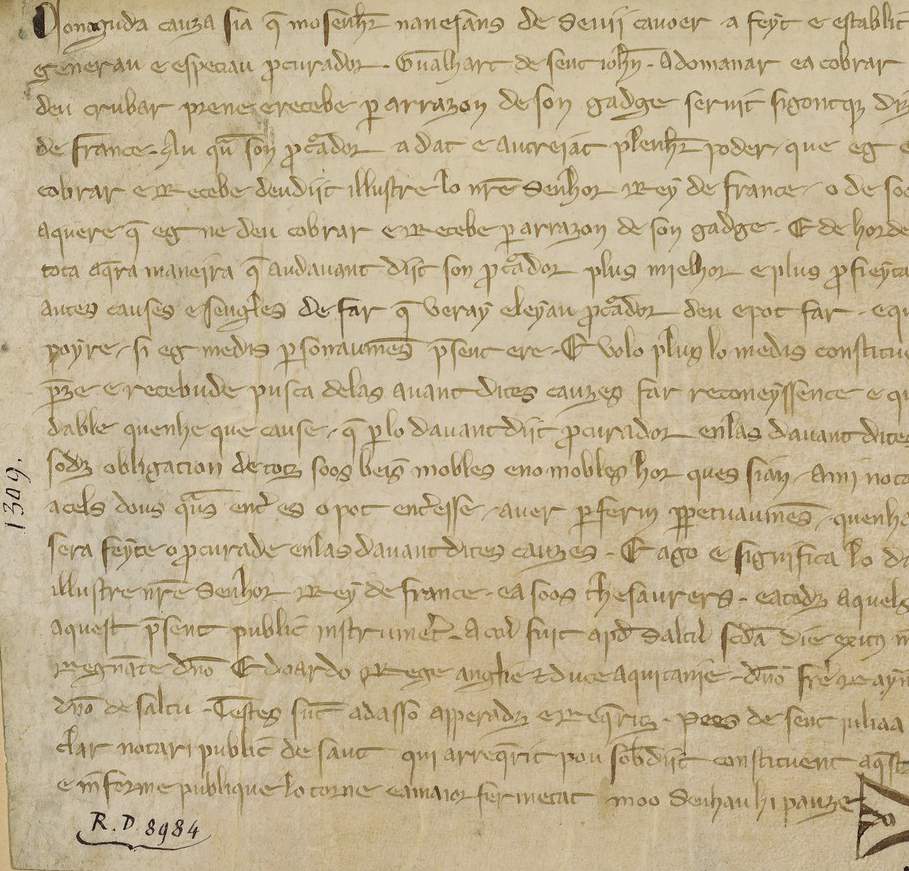 Conoguda cauza sia q̄ mosenhr̄ nanesans de Seuii cauoer a feyt e establit
generau e especiau p̄curador. Gualhart de sent iohn̄. Adomanar ea cobrar
deu crubar prene e recebe p̄ arrazon de son gadge seruit sigontq̄z
de france. Au qū son p̄cādor a dat e autreiat plenhr̄ poder, que eg
cobrar e Recebe deudiit illustre lo nr̄e Senhor Rey de france, o de
aquere q̄ eg ne deu cobrar e Recebe p̄ arrazon de son gadge. E de
tota aq̄ra maneira q̄ audauant diit son p̄cādor plus mielhor e plus p̄fieyta
autes causes e sengles de far q̄ veray eleyau p̄cādor deu e pot far. e
poyre, si eg medis p̄sonaumēs p̄sent ere. E volo plus lo medis
p̄ze e recebude pusca delas auant dites cauzes far reconeyssence e
dable quenhe que cause, q̄ p̄ lo dauant diit p̄curador enlas dauant dites
sodz obligacion de totz soos beis mobles eno mobles hor ques sian, Ami
acels dous quās ent̄ es o pot ent̄esse, auer p̄ ferm p̄petuaumēs,
sera feyte o p̄curade enlas dauant dites cauzes. E ago e significa lo
illustre nr̄e Senhor Rey de france. ea soos thesaurers. eatodz aquels
aquest p̄sent public instrumēt. Actū fuit apd̄ Saltū scdā die exitꝰ
Regnāte dn̄o Edoardo Rege anglie & duce aquitanie. dn̄o
dn̄o de saltu. Testes sūt adasso apperadz e Req̄ritz. Pees de sent iuliaa
clar notari public de saut qui arreq̄rit pou sobdiit constituent
e in ferme publique lo torne eamaior fermetat moo Senhau hi pauze
1309.
R. D. 8984